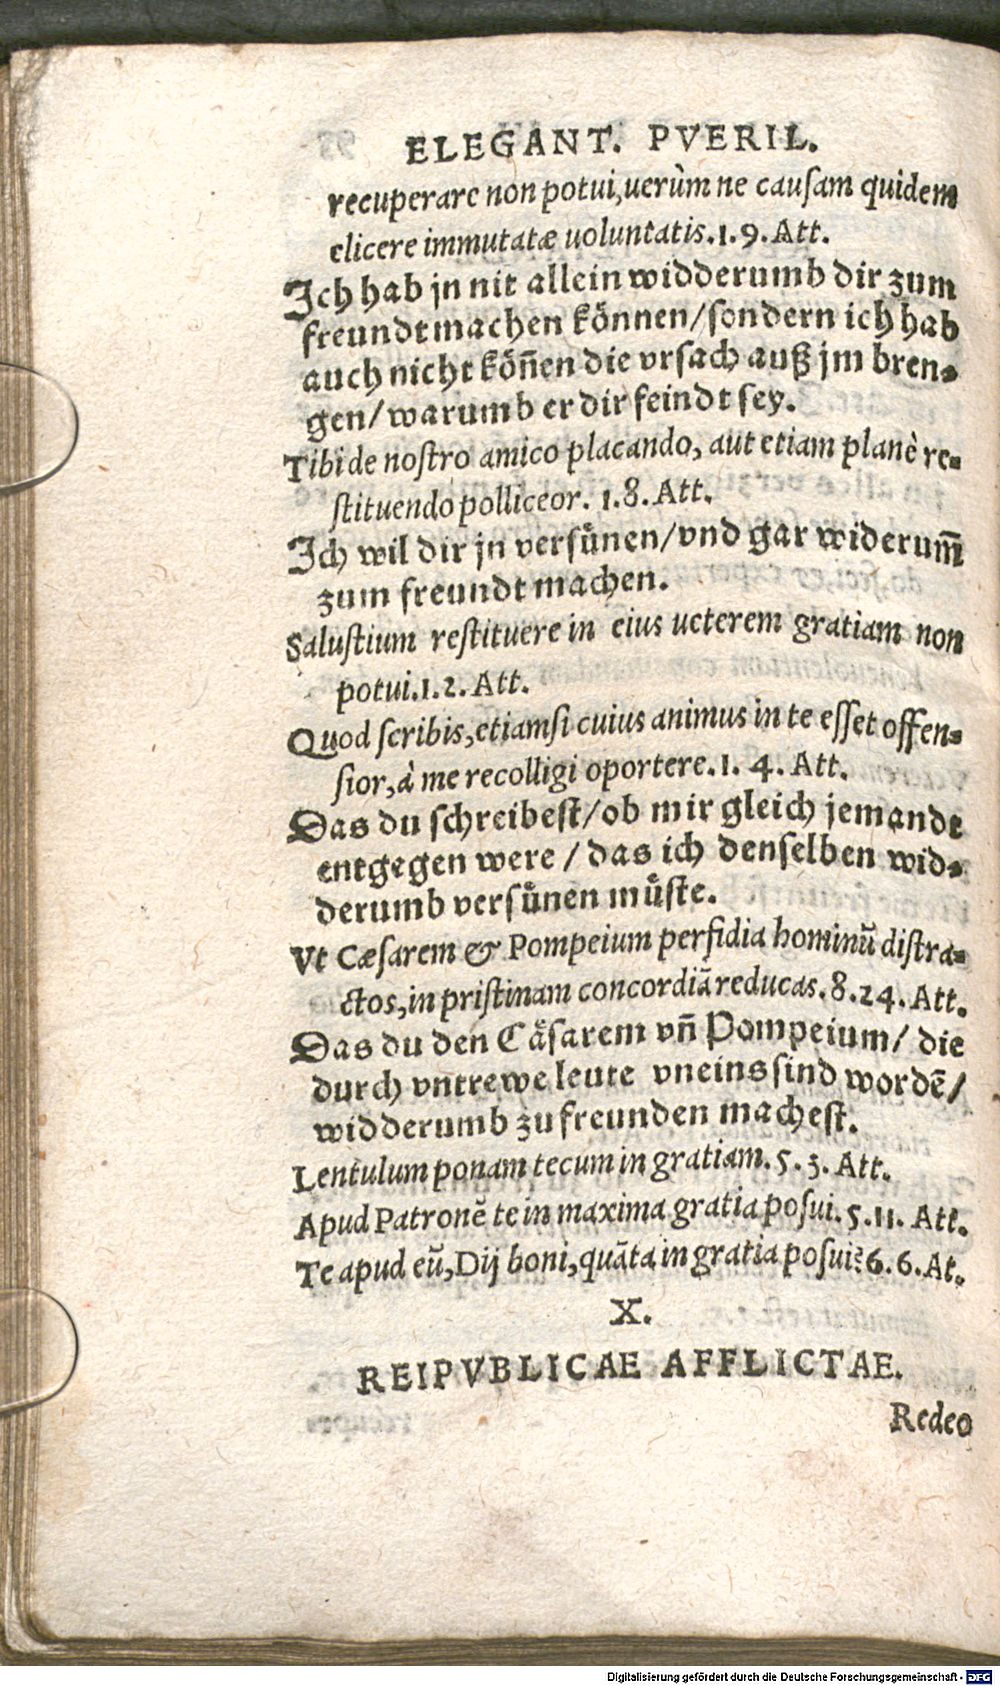 ELEGANT. PVERIL.
recuperare non potui, uerùm ne causam quidem
elicere immutatæ uoluntatis. 1. 9. Att.
Jch hab jn nit allein widderumb dir zum
freundt machen können/sondern ich hab
auch nicht köñen die vrsach auß jm bren-
gen/warumb er dir feindt sey.
Tibi de nostro amico placando, aut etiam planè re-
stituendo polliceor. 1. 8. Att.
Jch wil dir jn versůnen/vnd gar widerum̃
zum freundt machen.
Salustium restituere in eius ueterem gratiam non
potui. 1. 2. Att.
Quod scribis, etiamsi cuius animus in te esset offen-
sior, à me recolligi oportere. 1. 4. Att.
Das du schreibest/ob mir gleich jemandt
entgegen were / das ich denselben wid-
derumb versůnen můste.
Vt Cæsarem & Pompeium perfidia hominũ distra-
ctos, in pristinam concordiã reducas. 8. 24. Att.
Das du den Cäsarem vñ Pompeium/ die
durch vntrewe leute vneins sind wordẽ/
widderumb zu freunden machest.
Lentulum ponam tecum in gratiam. 5. 3. Att.
Apud Patronẽ te in maxima gratia posui. 5. 11. Att.
Te apud eũ, Dij boni, quãta in gratia posui? 6. 6. At.
X.
REIPVBLICAE AFFLICTAE.
Redeo
Digitalisierung gefördert durch die Deutsche Forschungsgemeinschaft - DFG